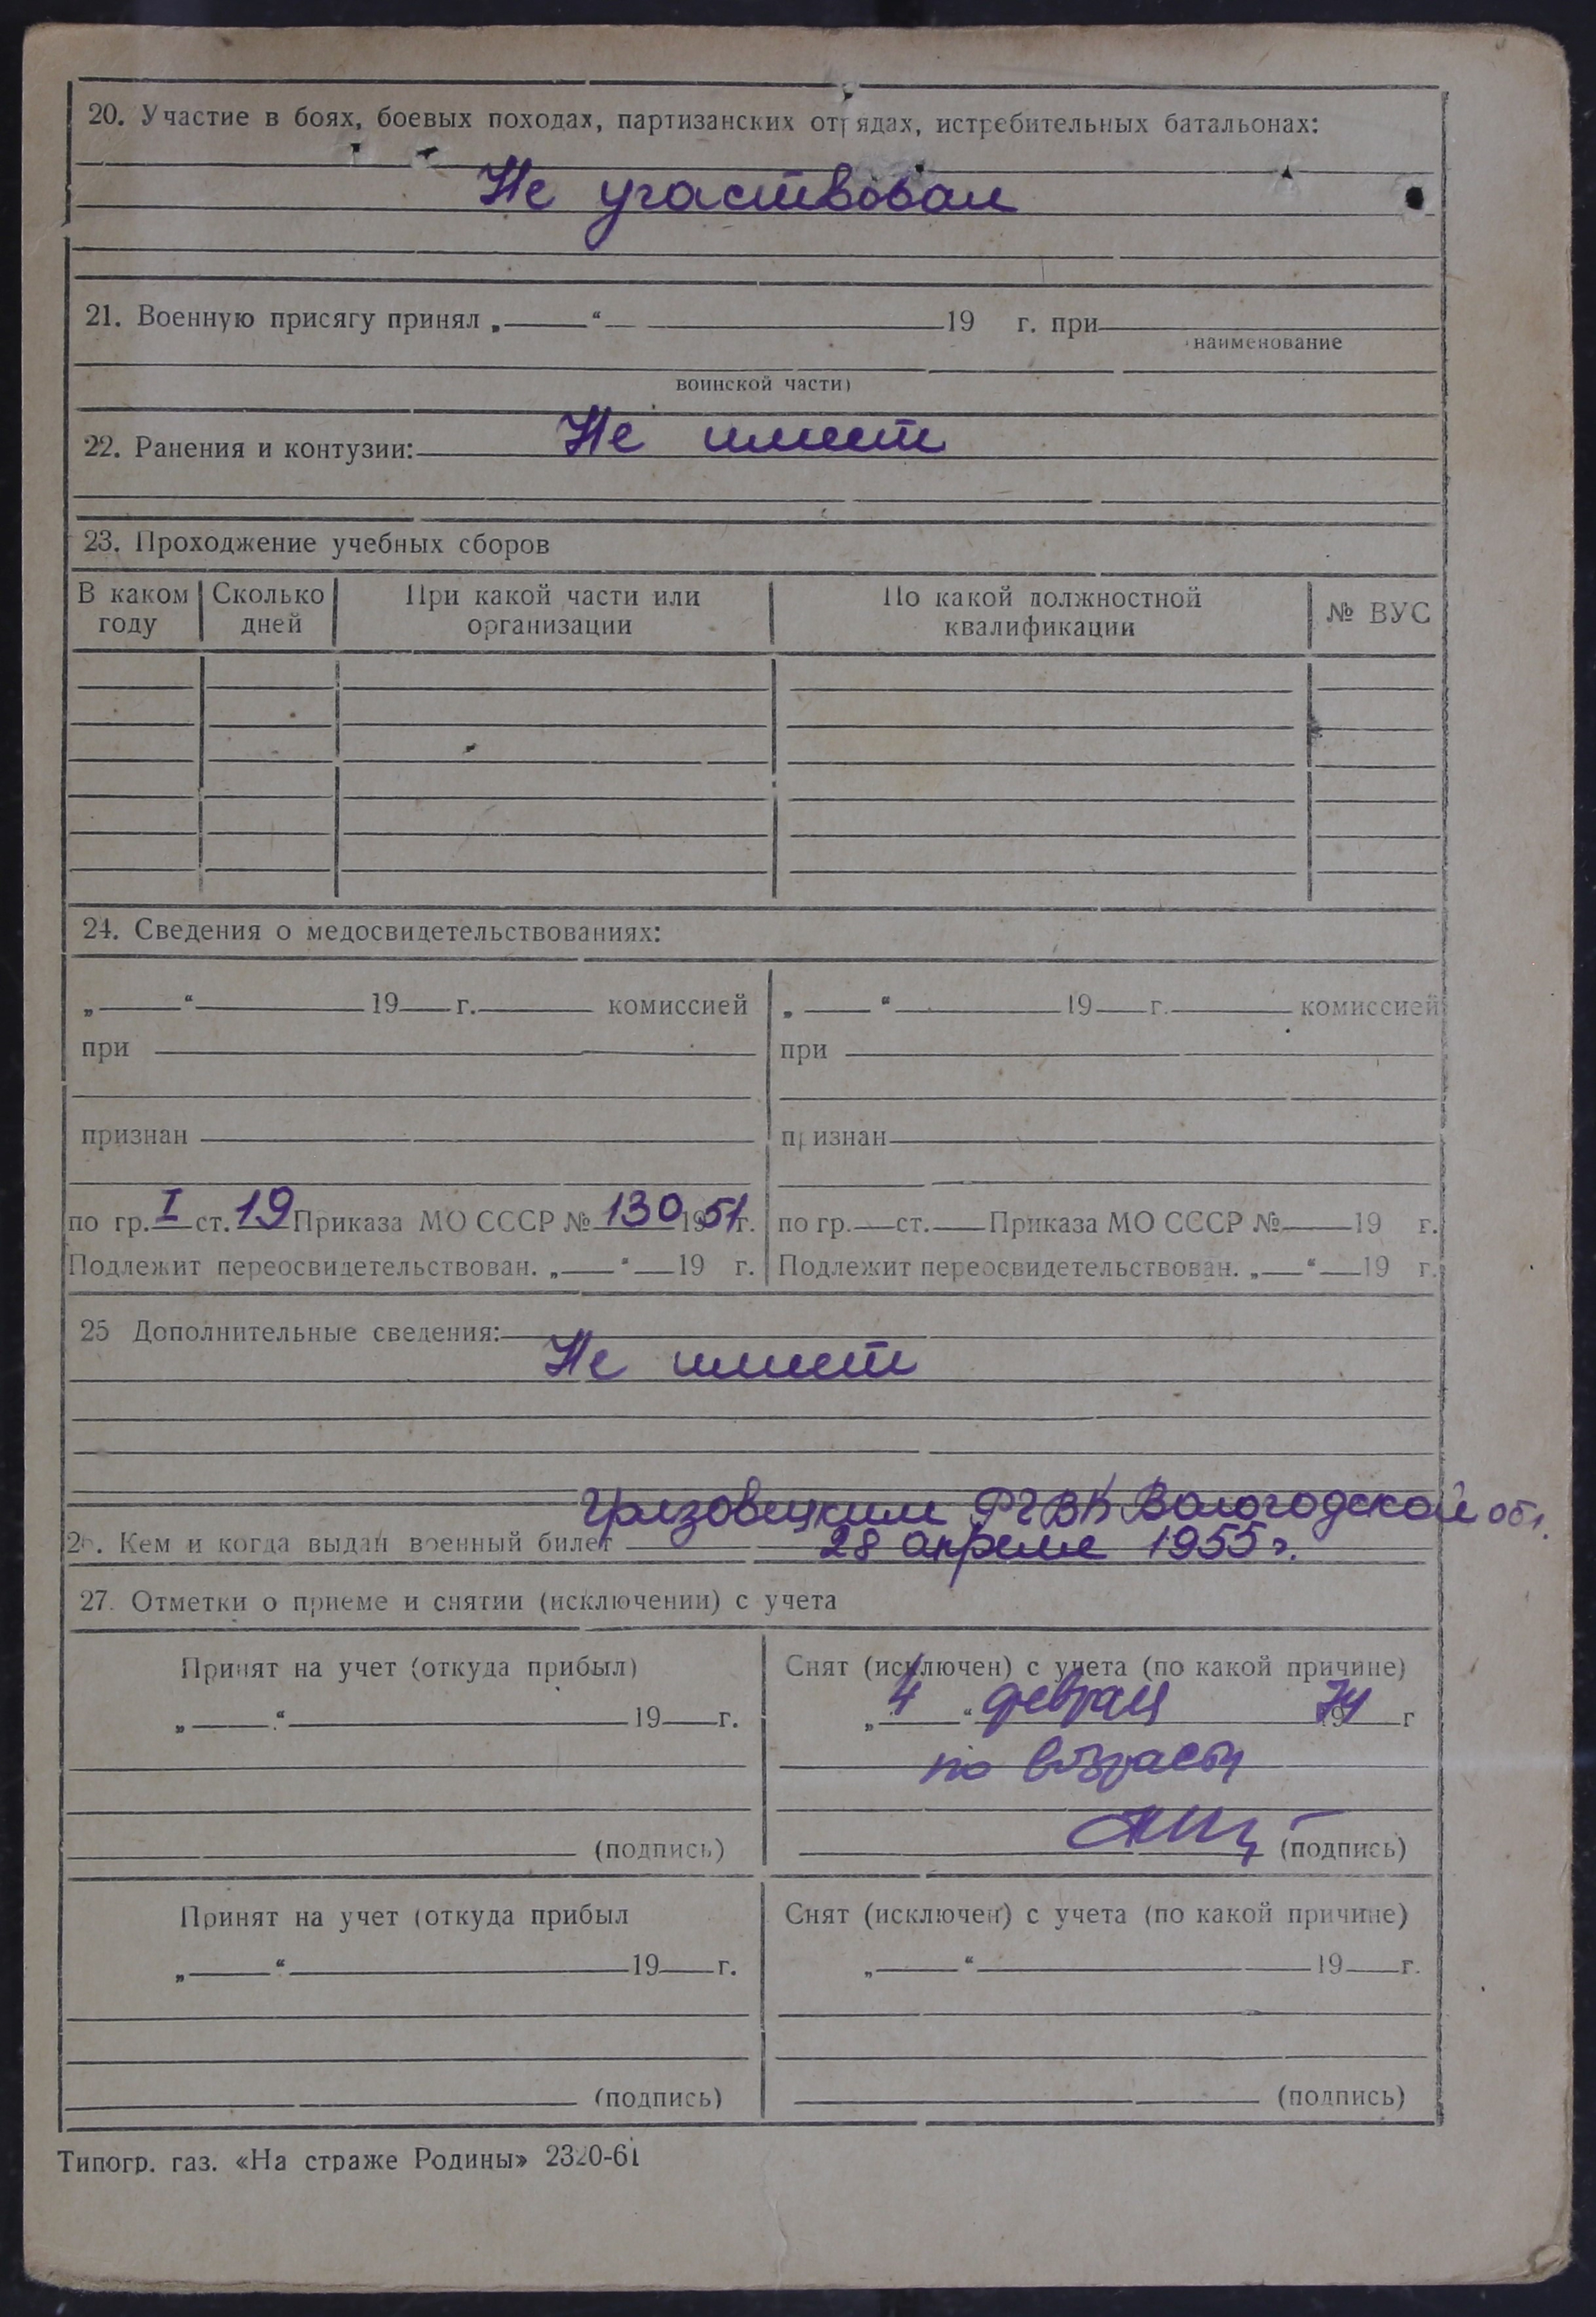 20. Участие в боях, боевых походах, партизанских отрядах, истребительных батальонах:
Не участвовал
21. Военную присягу принял „ “ 19 г. при
наименование
воинской части)
22. Ранения и контузии: Не имеет
23. Проходжение учебных сборов
В каком году Сколько дней При какой части или организации По какой должностной квалификации № ВУС
24. Сведения о медосвидетельствованиях:
„ “ 19 г. комиссией „ “ 19 г. комиссией
при при
признан признан
по гр. I ст. 19 Приказа МО СССР № 130 1951 г. по гр. ст. Приказа МО СССР № 19 г.
Подлежит переосвидетельствован. „ “ 19 г. Подлежит переосвидетельствован. „ “ 19 г.
25 Дополнительные сведения:
Не имеет
Грязовецким РГВК Вологодской обл.
26. Кем и когда выдан военный билет 28 апреля 1955 г.
27. Отметки о приеме и снятии (исключении) с учета
Принят на учет (откуда прибыл) Снят (исключен) с учета (по какой причине)
„ “ 19 г. „ 4 “ февраля 1974 г
по возрасту
(подпись) (подпись)
Принят на учет (откуда прибыл Снят (исключен) с учета (по какой причине)
„ “ 19 г. „ “ 19 г.
(подпись) (подпись)
Типогр. газ. «На страже Родины» 2320-61